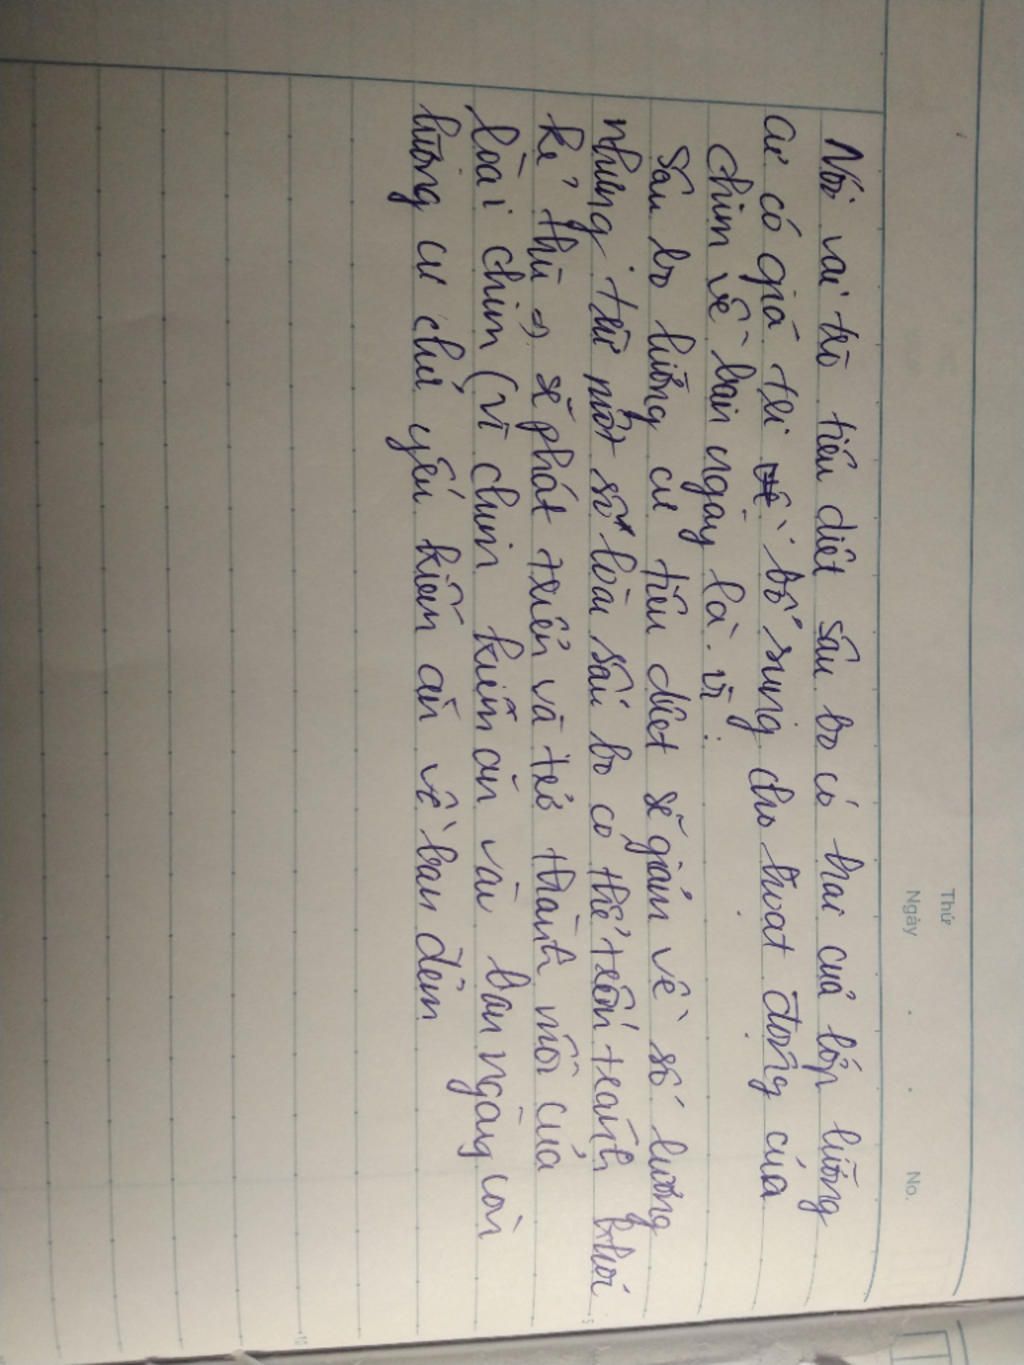 Thứ
Ngày
No.
Nói vai trò tiêu diệt sâu bọ có hại của lớp lưỡng
cư có giá trị bổ sung cho hoạt động của
chim về ban ngày là vì:
Sâu bọ lưỡng cư tiêu diệt sẽ giảm về số lượng
nhưng từ một số loài sâu bọ có thể trốn tránh khỏi
kẻ thù => sẽ phát triển và trở thành mồi của
loài chim (vì chim kiếm ăn vào ban ngày còn
lưỡng cư chủ yếu kiếm ăn về ban đêm